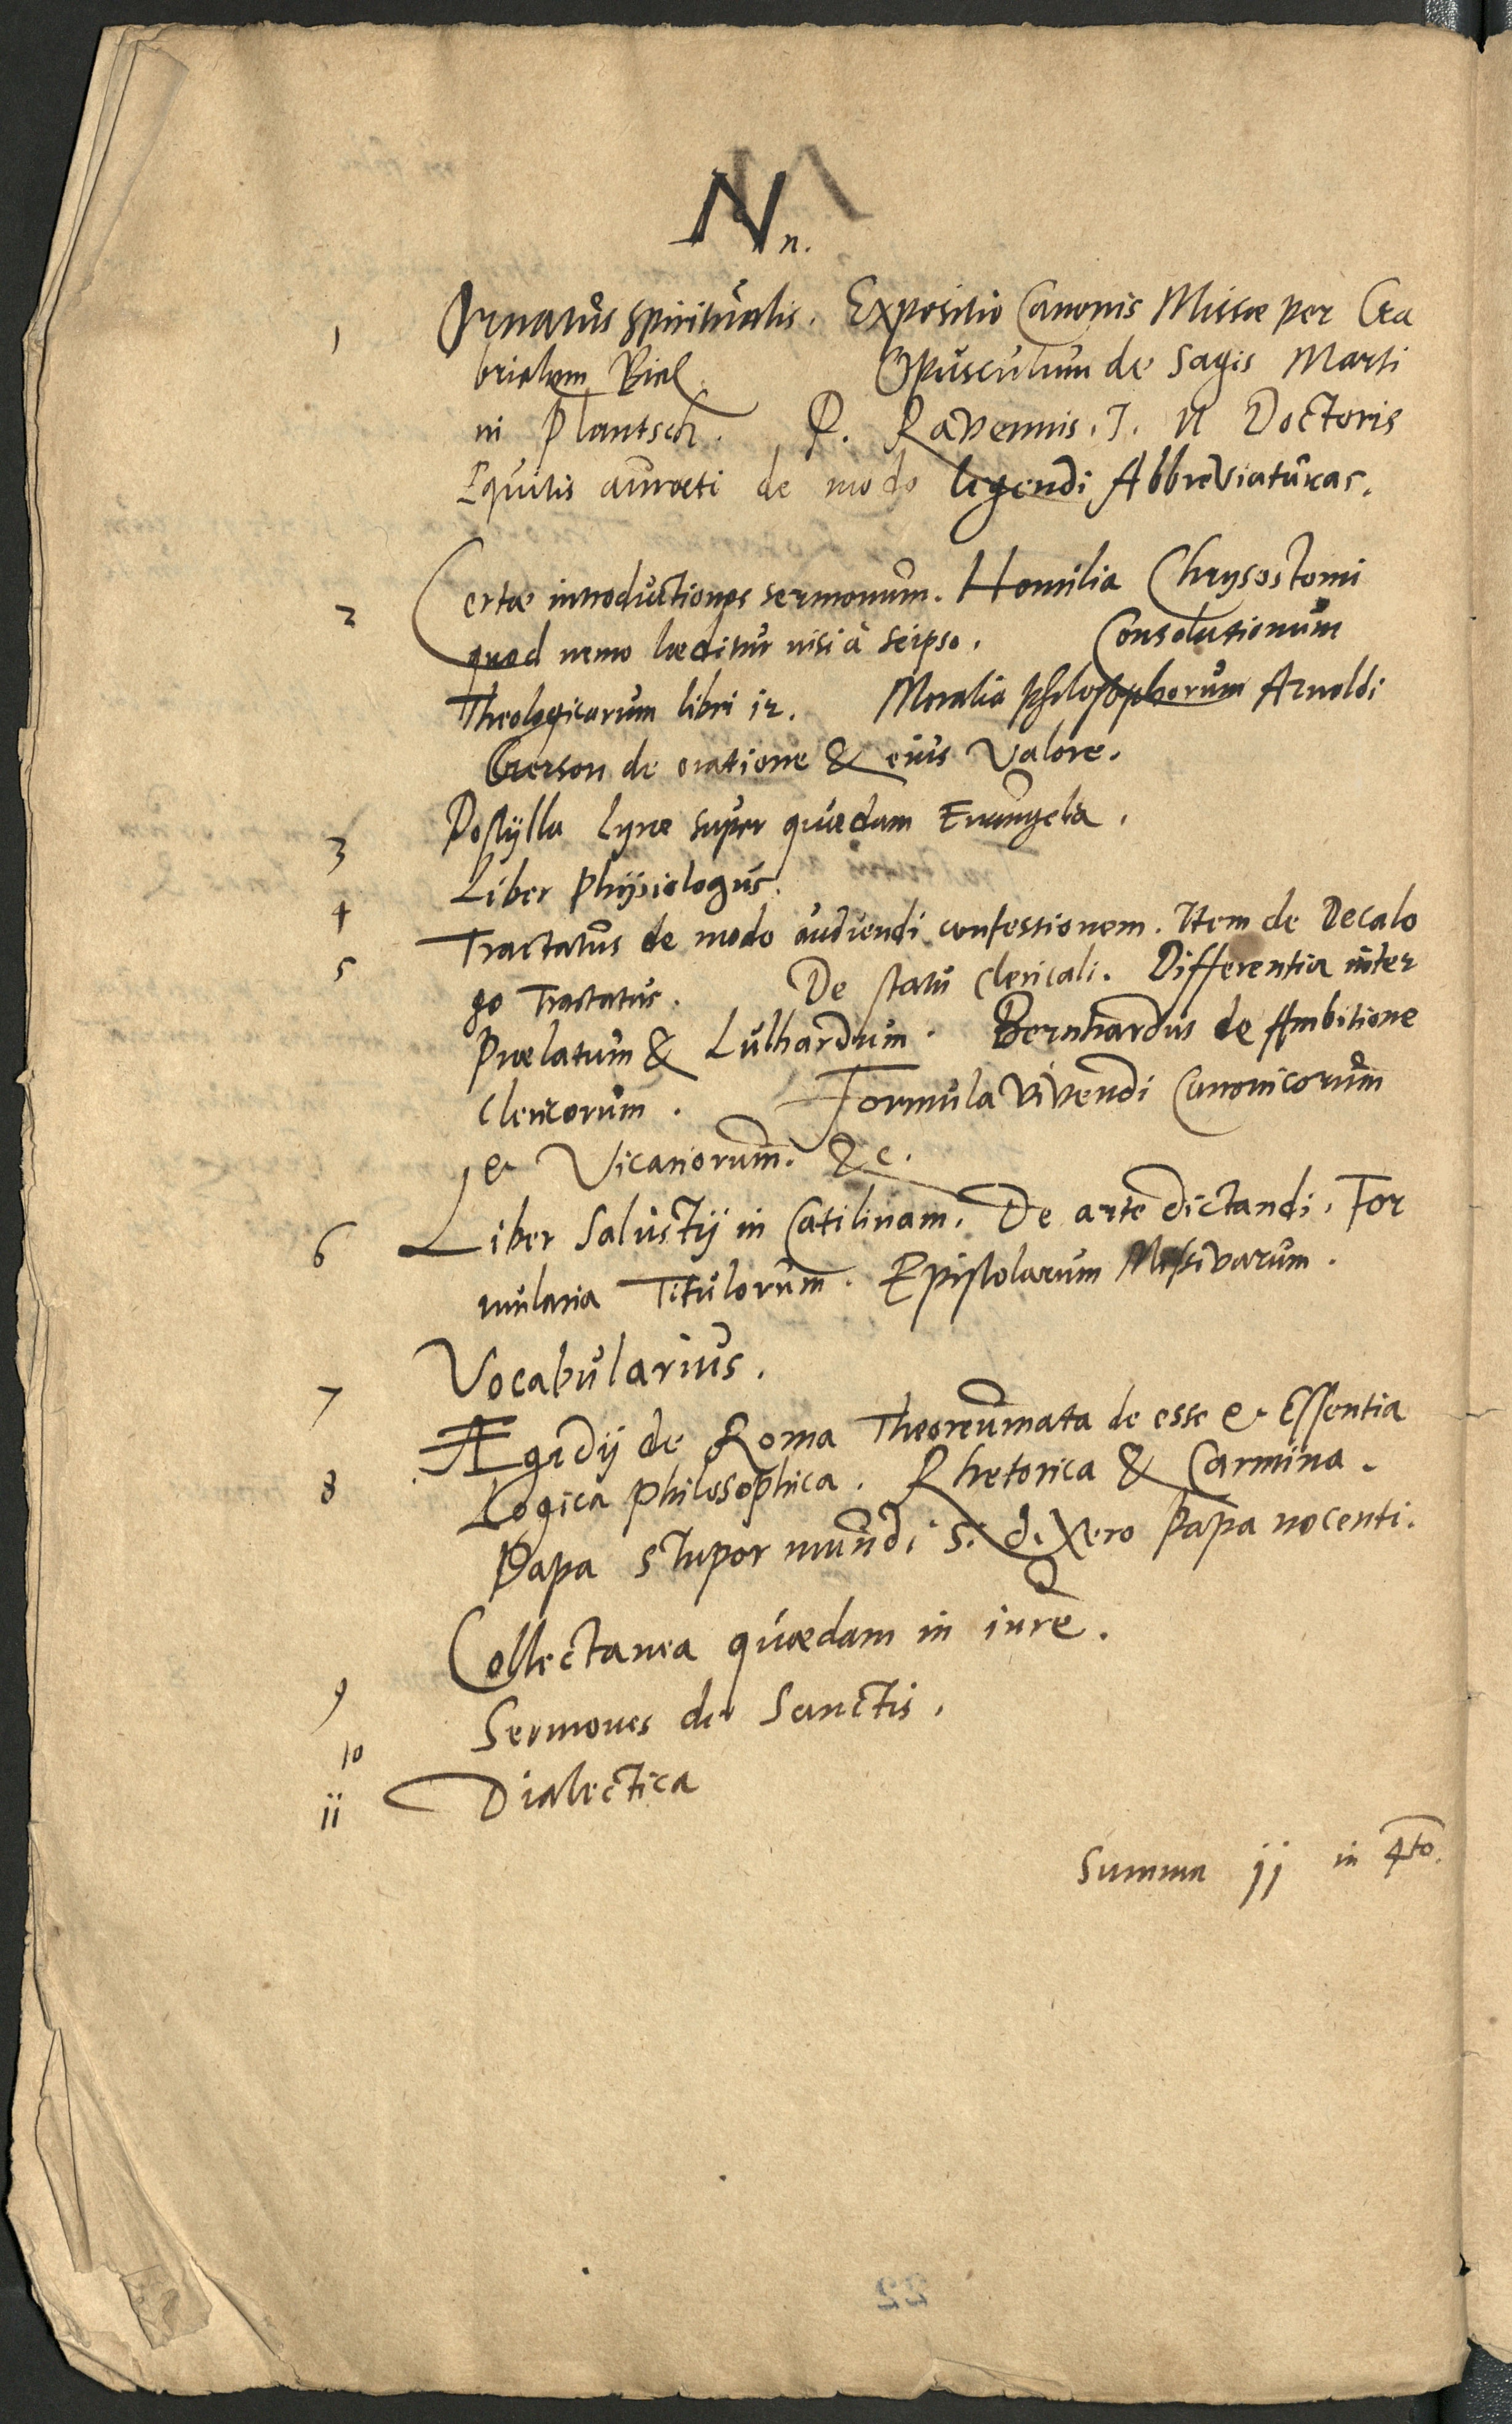 Nn.
1 Ornatus spiritualis. Expositio Canonis Missæ per Ga
brielem Biel. Opusculum de Sagis Marti
ni Plantsch. P. Ravennis. J. U Doctoris
Equitis aurati de modo legendi Abbreviaturas.
2 Certæ introductiones sermonum. Homilia Chrysostomi
quod nemo læditur nisi à seipso. Consolationum
Theologicarum libri 12. Moralia philosophorum Arnoldi
Gerson de oratione & eius Valore.
3 Postylla Lyræ super quædam Euangelia.
4 Liber Physiologus.
5 Tractatus de modo audiendi confessionem. Item de Decalo
go Tractatus. De statu clericali. Differentia inter
Prælatum & Lulhardum. Bernhardus de Ambitione
clericorum. Formula vivendi Canonicorum
et Vicariorum. &c.
6 Liber Salustij in Catilinam. De arte dictandi. For
mularia Titulorum. Epistolarum Missivarum.
7 Vocabularius.
8 Ægidij de Roma Theoreumata de esse et Essentia
Logica philosophica. Rhetorica & Carmina.
Papa stupor mundi si dixero Papa nocenti.
9 Collectanea quædam in iure.
10 Sermones de Sanctis.
ii Dialectica
Summa jj in 4to.
22